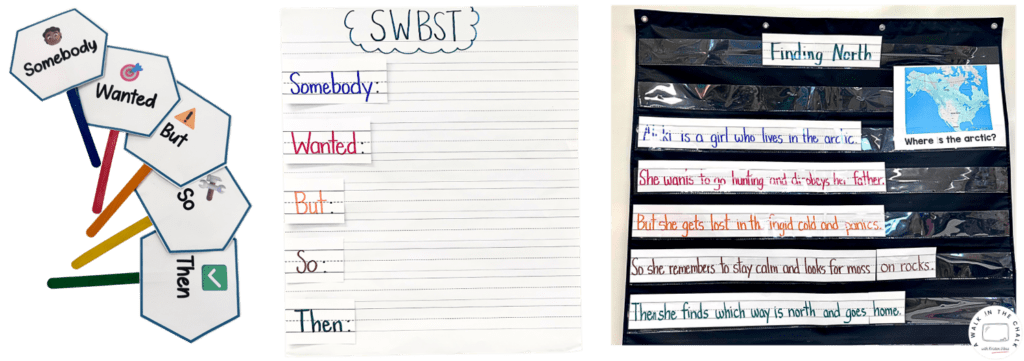 Somebody
Wanted
But
So
Then
SWBST
Somebody:
Wanted:
But:
So:
Then:
Finding North
is a girl who lives in the arctic.
She wants to go hunting and disobeys her father.
But she gets lost in the frigid cold and panics.
So she remembers to stay calm and looks for moss on rocks.
Then she finds which way is north and goes home.
Where is the arctic?
A WALK IN THE CHALK